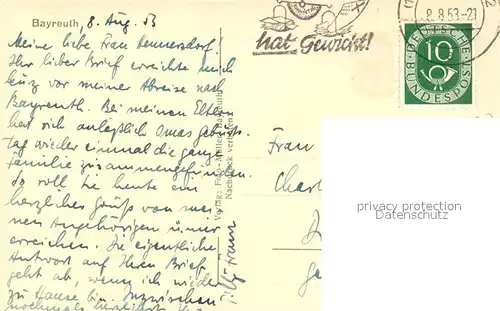 Bayreuth, 8. Aug. 53
Meine liebe Frau Hennersdorf.
Ihr lieber Brief erreichte mich
kurz vor meiner Abreise nach
Bayreuth. Bei meinen Eltern
hat sich anläßlich Omas Geburts-
tag wieder einmal die ganze
Familie zusammengefunden.
So soll Sie heute ein
herzlicher Gruß von
meinen Angehörigen u. mir
erreichen. Die eigentliche
Antwort auf Ihren Brief
geht ab, wenn ich wieder
zu Hause bin. Inzwischen
nochmals herzlichst
Verlag: Foto-Müller, Bayreuth
Nachdruck verboten
hat Gewicht!
8.8.53-21
DEUTSCHE
10
BUNDESPOST
Frau
Charl
privat protected
Datenschutz